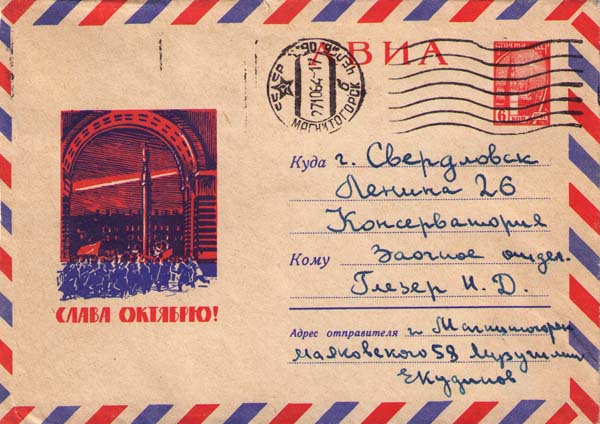 АВИА
СССР
МАГНИТОГОРСК
271064-17
почта
6 коп
Куда г. Свердловск
Ленина 26
Консерватория
Кому Заочное отдел.
Глезер И. Д.
СЛАВА ОКТЯБРЮ!
Адрес отправителя г. Магнитогорск
маяковского 58 Музучилищ
Е Кудинов